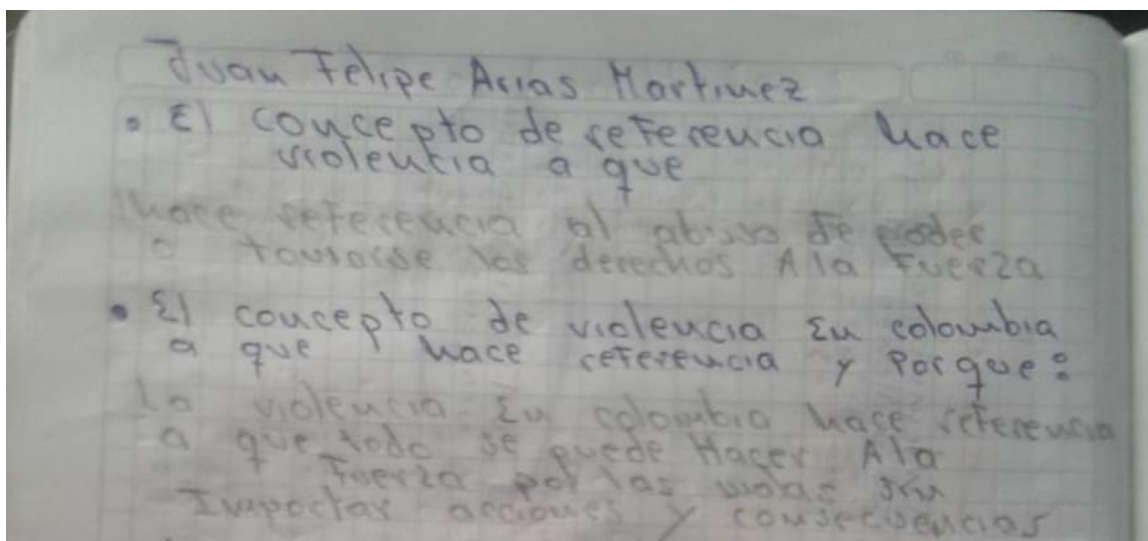 Juan Felipe Arias Martinez
• El concepto de referencia hace
violencia a que
Hace referencia al abuso de poder
o tomarse los derechos A la Fuerza
• El concepto de violencia En colombia
a que hace referencia y Porque:
La violencia En colombia hace referencia
a que todo se puede Hacer A la
Fuerza por las malas sin
Importar acciones y consecuencias